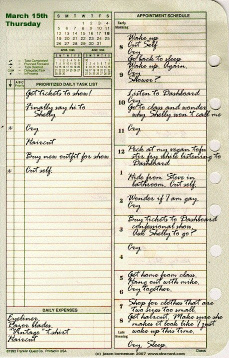 March 15th
Thursday
PRIORITIZED DAILY TASK LIST
Get tickets to show!
Finally say hi to
Shelly
Cry
Haircut
Buy new outfit for show
Cut self.
DAILY EXPENSES
Eyeliner
Razor blades
Vintage T-shirt
Haircut
APPOINTMENT SCHEDULE
Early Morning
Wake up
8 Cut Self
Cry
Go back to sleep
Wake up. Again.
9 Cry
Shower?
10 Listen to Dashboard
Cry
Go to class and wonder
why Shelly won't call me
11 Cry
12 Pick at my vegan tofu
stir fry while listening to
Dashboard
1 Hide from Steve in
bathroom. Cut self.
2 Wonder if I am gay
Cry
3 Buy tickets to Dashboard
confessional show.
Ask Shelly to go?
4 Cry
5 Get home from class.
Hang out with mike.
6 Cry together.
7 Shop for clothes that are
two sizes too small.
8 Get haircut. Make sure she
makes it look like I just
woke up this time.
Cry. Sleep.